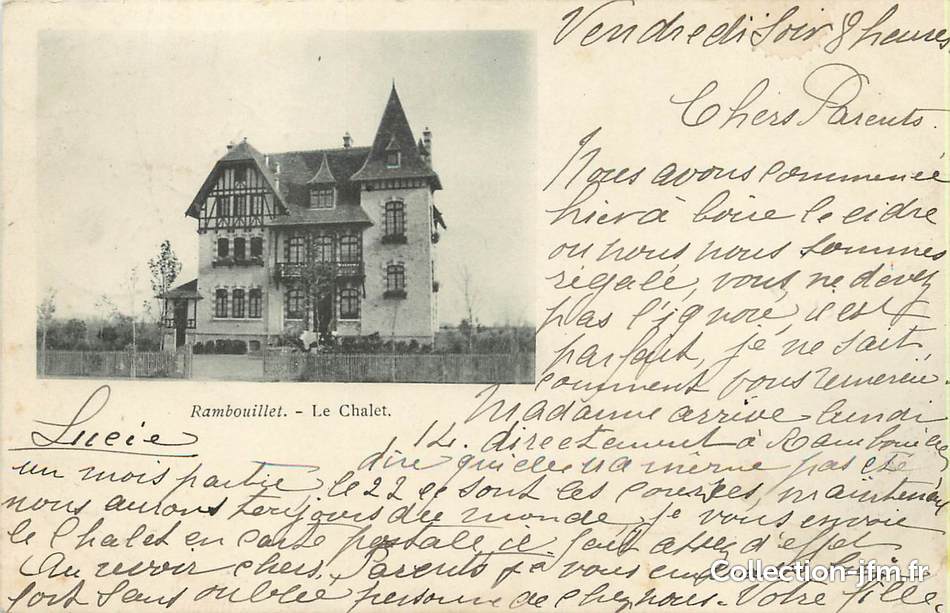 Vendredi Soir 8 heures
Chers Parents.
Nous avons commencé
hier à boire le cidre
ou nous nous sommes
régalé, vous, ne devez
pas l'ignoré il est
parfait, je ne sait
comment vous remercié.
Madame arrive lundi
14. directement à Rambouillet
dire qu'elle n'a même pas été
un mois partie le 22 ce sont les courses, maintenant
nous aurons toujours du monde. je vous envoie
le Chalet en carte postale il fait assez d'effet
Au revoir chers Parents je vous
fort sans oublié personne de chez nous. Votre fille
Lucie
Rambouillet. - Le Chalet.
Collection-jfm.fr